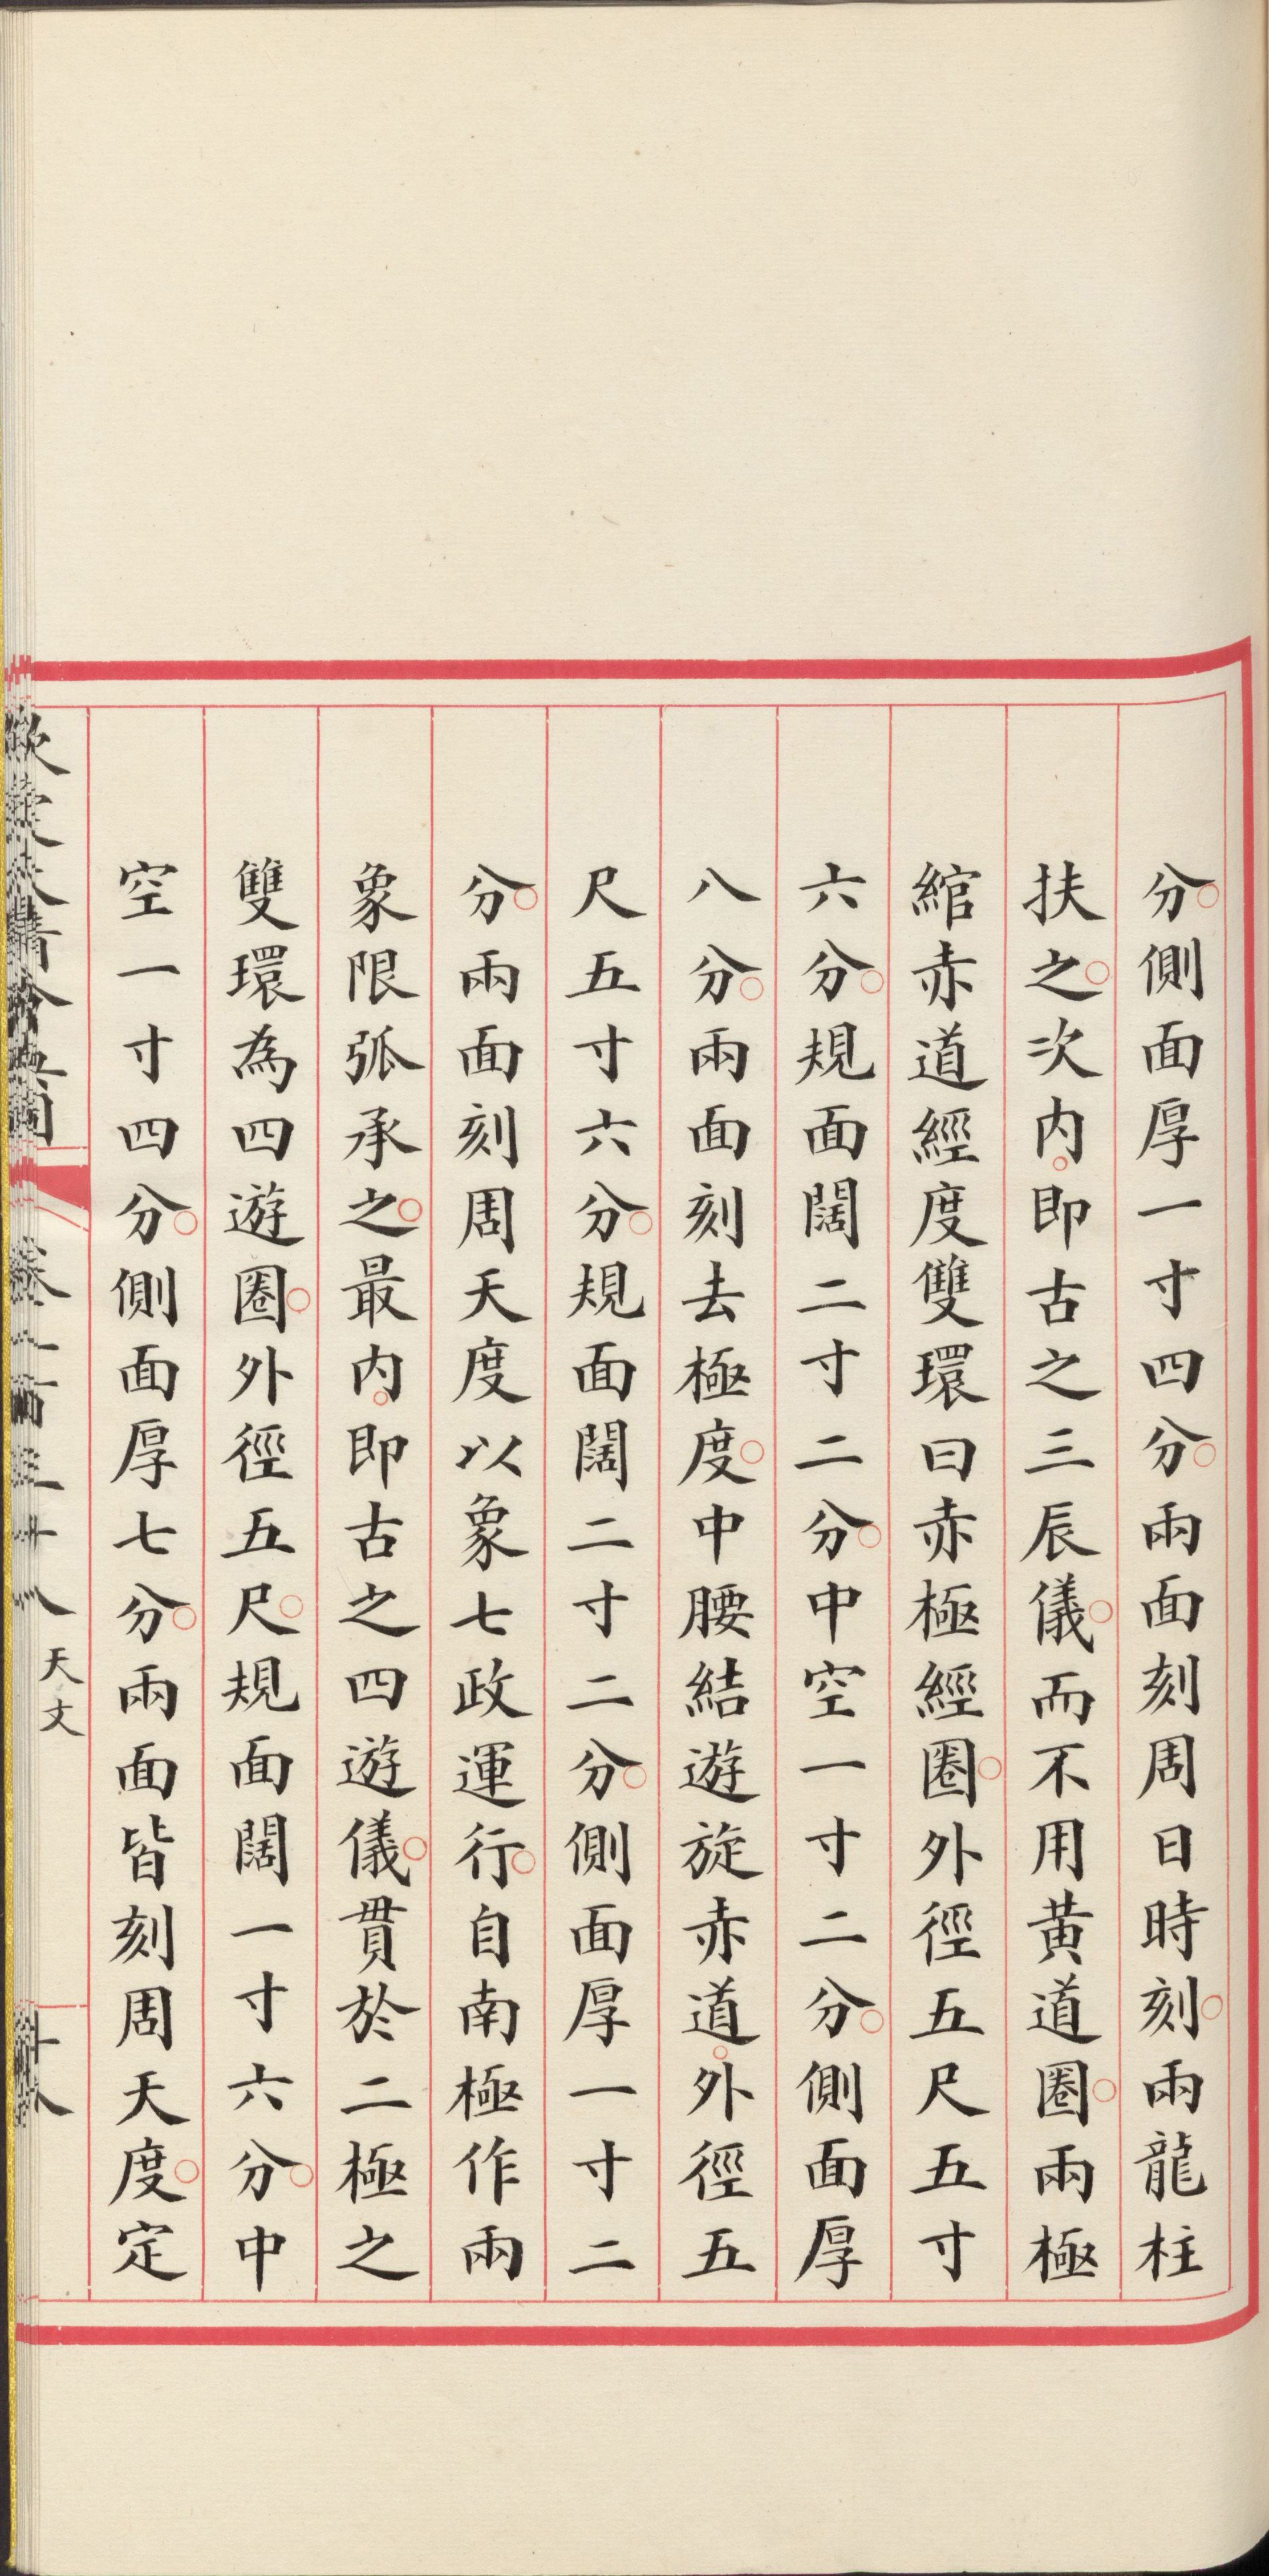 分。側面厚一寸四分。兩面刻周日時刻。兩龍柱
扶之。次内。即古之三辰儀。而不用黃道圈。兩極
綰赤道經度雙環曰赤極經圈。外徑五尺五寸
六分。規面闊二寸二分。中空一寸二分。側面厚
八分。兩面刻去極度。中腰結遊旋赤道。外徑五
尺五寸六分。規面闊二寸二分。側面厚一寸二
分。兩面刻周天度以象七政運行。自南極作兩
象限弧承之。最内。即古之四遊儀。貫於二極之
雙環為四遊圈。外徑五尺。規面闊一寸六分。中
空一寸四分。側面厚七分。兩面皆刻周天度。定
天文